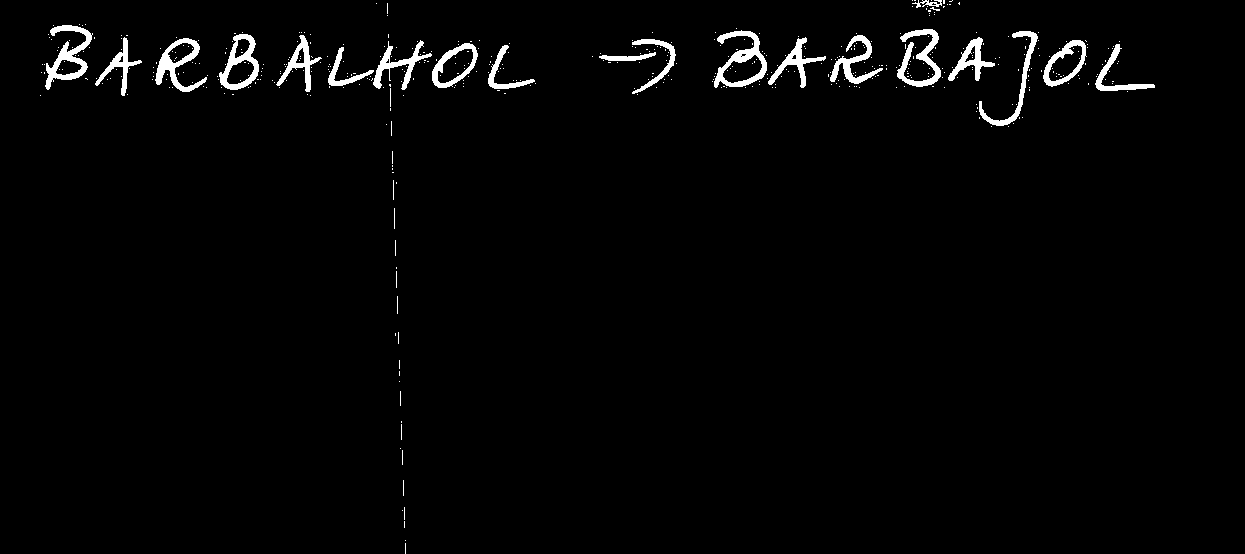 BARBALHOL → BARBAJOL